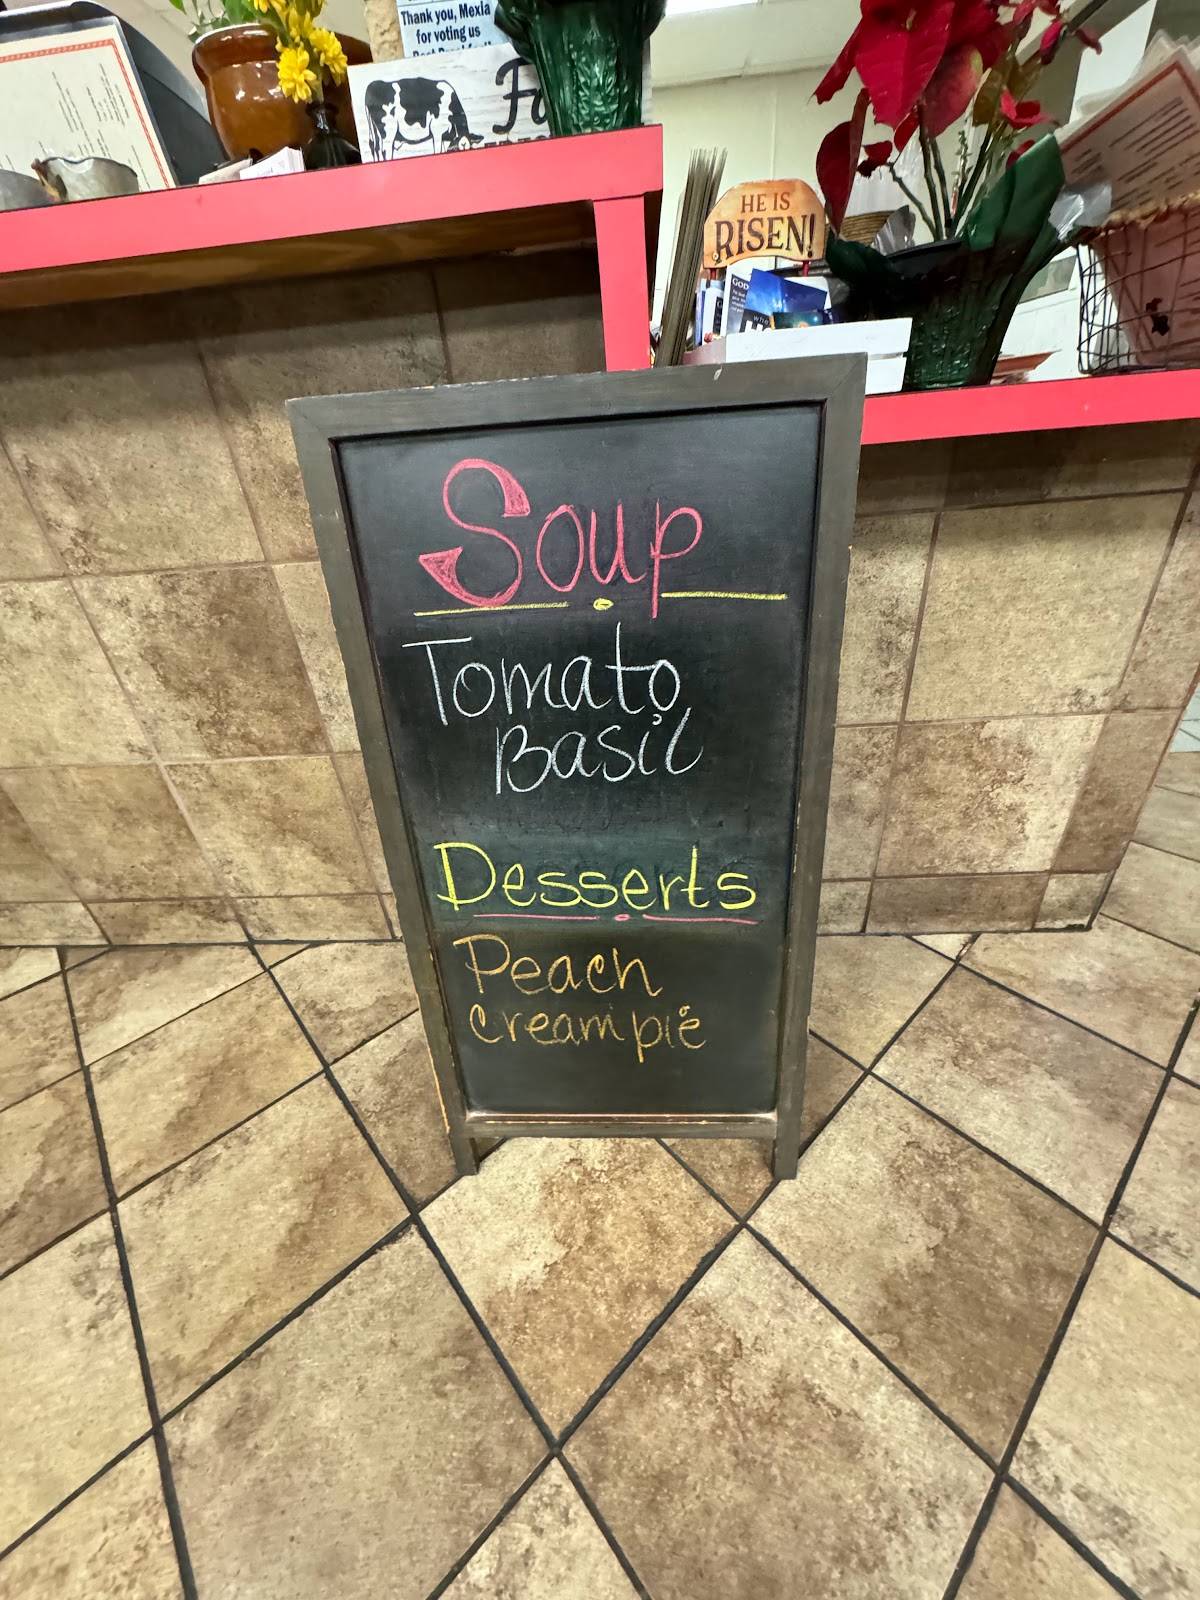 Thank you, Mexia
for voting us
HE IS
RISEN!
GOD
Soup
Tomato
Basil
Desserts
Peach
Cream pie